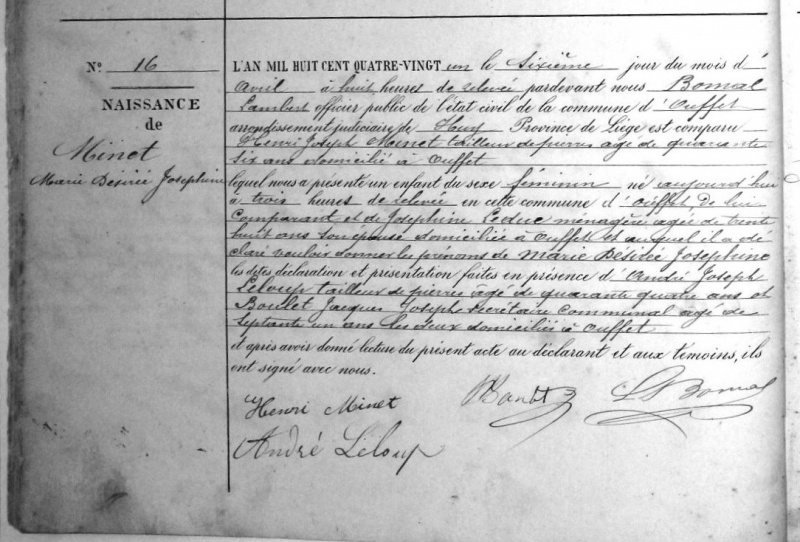 N° 16
NAISSANCE
de
Minet
Marie Désirée Josephine
L'AN MIL HUIT CENT QUATRE-VINGT un le Sixième jour du mois d'
Avril à huit heures de relevée pardevant nous Bomal
Lambert officier public de l'état civil de la commune d'Ouffet
arrondissement judiciaire de Huy Province de Liège est comparu
Henri Joseph Minet tailleur de pierres agé de quarante
six ans domicilié à Ouffet
lequel nous a présenté un enfant du sexe féminin né aujourd'hui
à trois heures de relevée en cette commune d'Ouffet de lui
Comparant et de Josephine Leduc ménagère agée de trente
huit ans son épouse domiciliée à Ouffet et auquel il a dé
claré vouloir donner les prénoms de Marie Désirée Josephine
les dites déclaration et présentation faites en présence d'André Joseph
Leloup tailleur de pierres agé de quarante quatre ans et
Boulet Jacques Joseph secrétaire Communal agé de
Septante un ans les deux domiciliés à Ouffet
et après avoir donné lecture du présent acte au déclarant et aux témoins, ils
ont signé avec nous.
Henri Minet
L Bomal
André Leloup